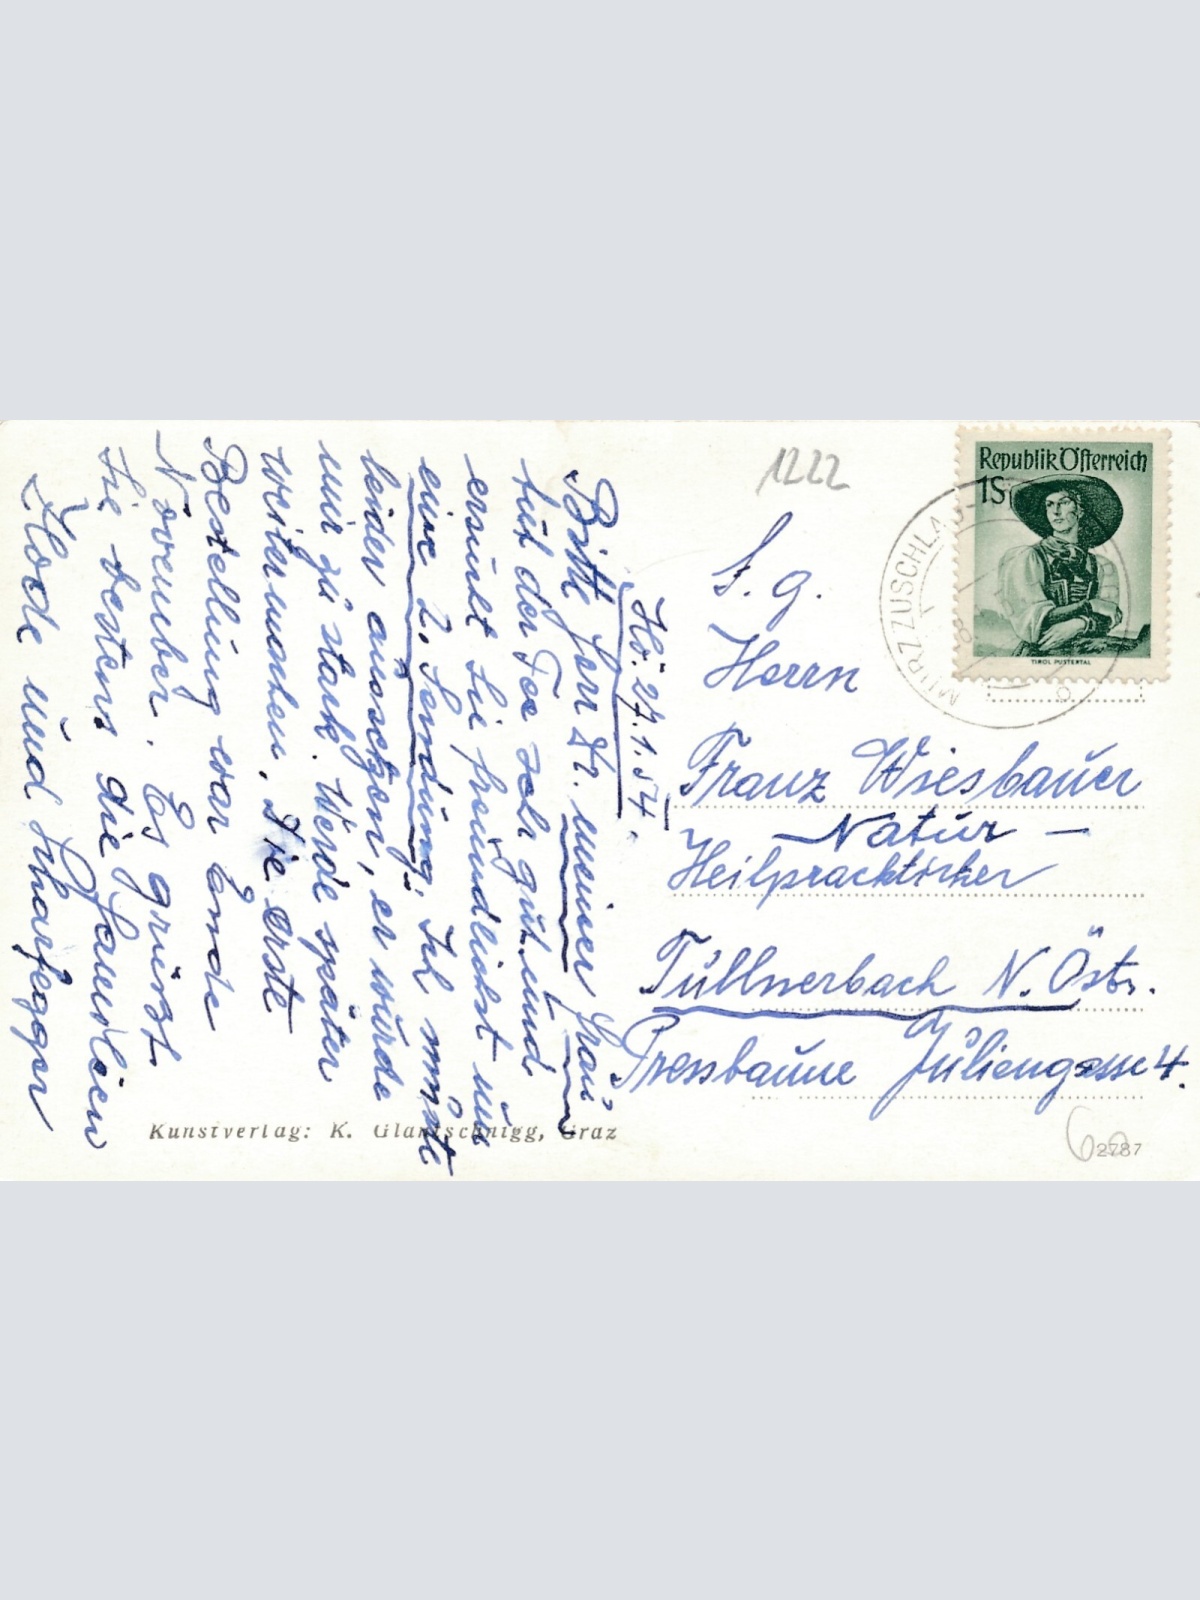 1222
Republik Österreich
1S
TIROL PUSTERTAL
MÜRZZUSCHLAG
S. g.
Herrn
Franz Wiesbauer
Natur -
Heilpracktiker
Tullnerbach N. Östr.
Pressbaum Juliengasse 4.
2787
Hö. 27.1.54.
Bitte Herr Dr. meiner Frau
tut der Tee sehr gut und
ersucht Sie freundlichst um
eine 2. Sendung. Ich mußte
leider aussetzen, er wurde
mir zu stark. Werde später
weitermachen. Die erste
Bestellung war Ende
November. Es grüsst
Sie bestens die Familien
und Scharfegger
Kunstverlag: K. Glantschnigg, Graz